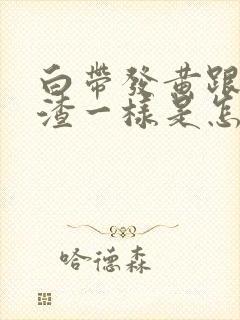 白带發黄跟
渣一樣是怎
哈德森